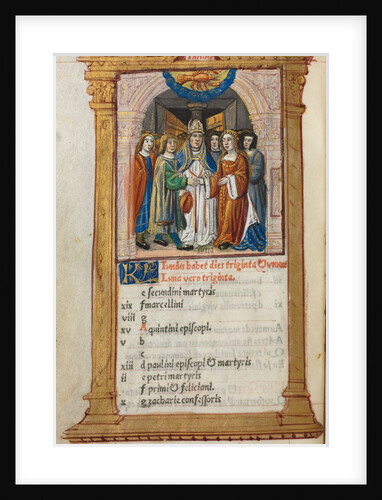 KL Iunius habet dies triginta
Luna vero triginta.
e secundini martyris
xix f marcellini
viii g
xv A quintini episcopi.
v b
c
xiii d paulini episcopi & martyris
ii e petri martyris
f primi & feliciani.
x g zacharie confessoris